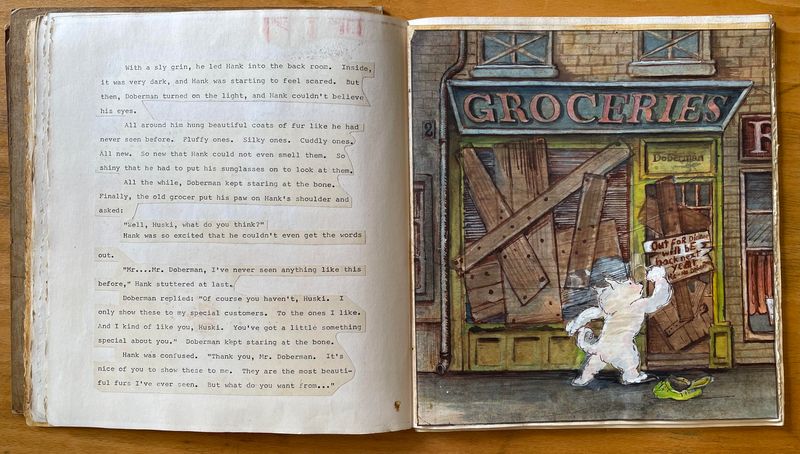 With a sly grin, he led Hank into the back room. Inside,
it was very dark, and Hank was starting to feel scared. But
them, Doberman turned on the light, and Hank couldn't believe
his eyes.
All around him hung beautiful coats of fur like he had
never seen before. Fluffy ones. Silky ones. Cuddly ones.
All new. So new that Hank could not even smell them. So
shiny that he had to put his sunglasses on to look at them.
All the while, Doberman kept staring at the bone.
Finally, the old grocer put his paw on Hank's shoulder and
asked:
"Well, Huski, what do you think?"
Hank was so excited that he couldn't even get the words
out.
"Mr....Mr. Doberman, I've never seen anything like this
before," Hank stuttered at last.
Doberman replied: "Of course you haven't, Huski. I
only show these to my special customers. To the ones I like.
And I kind of like you, Huski. You've got a little something
special about you." Doberman kept staring at the bone.
Hank was confused. "Thank you, Mr. Doberman. It's
nice of you to show these to me. They are the most beauti-
ful furs I've ever seen. But what do you want from..."
GROCERIES
2
Doberman
Out For Dinner
will be
back next
year
F